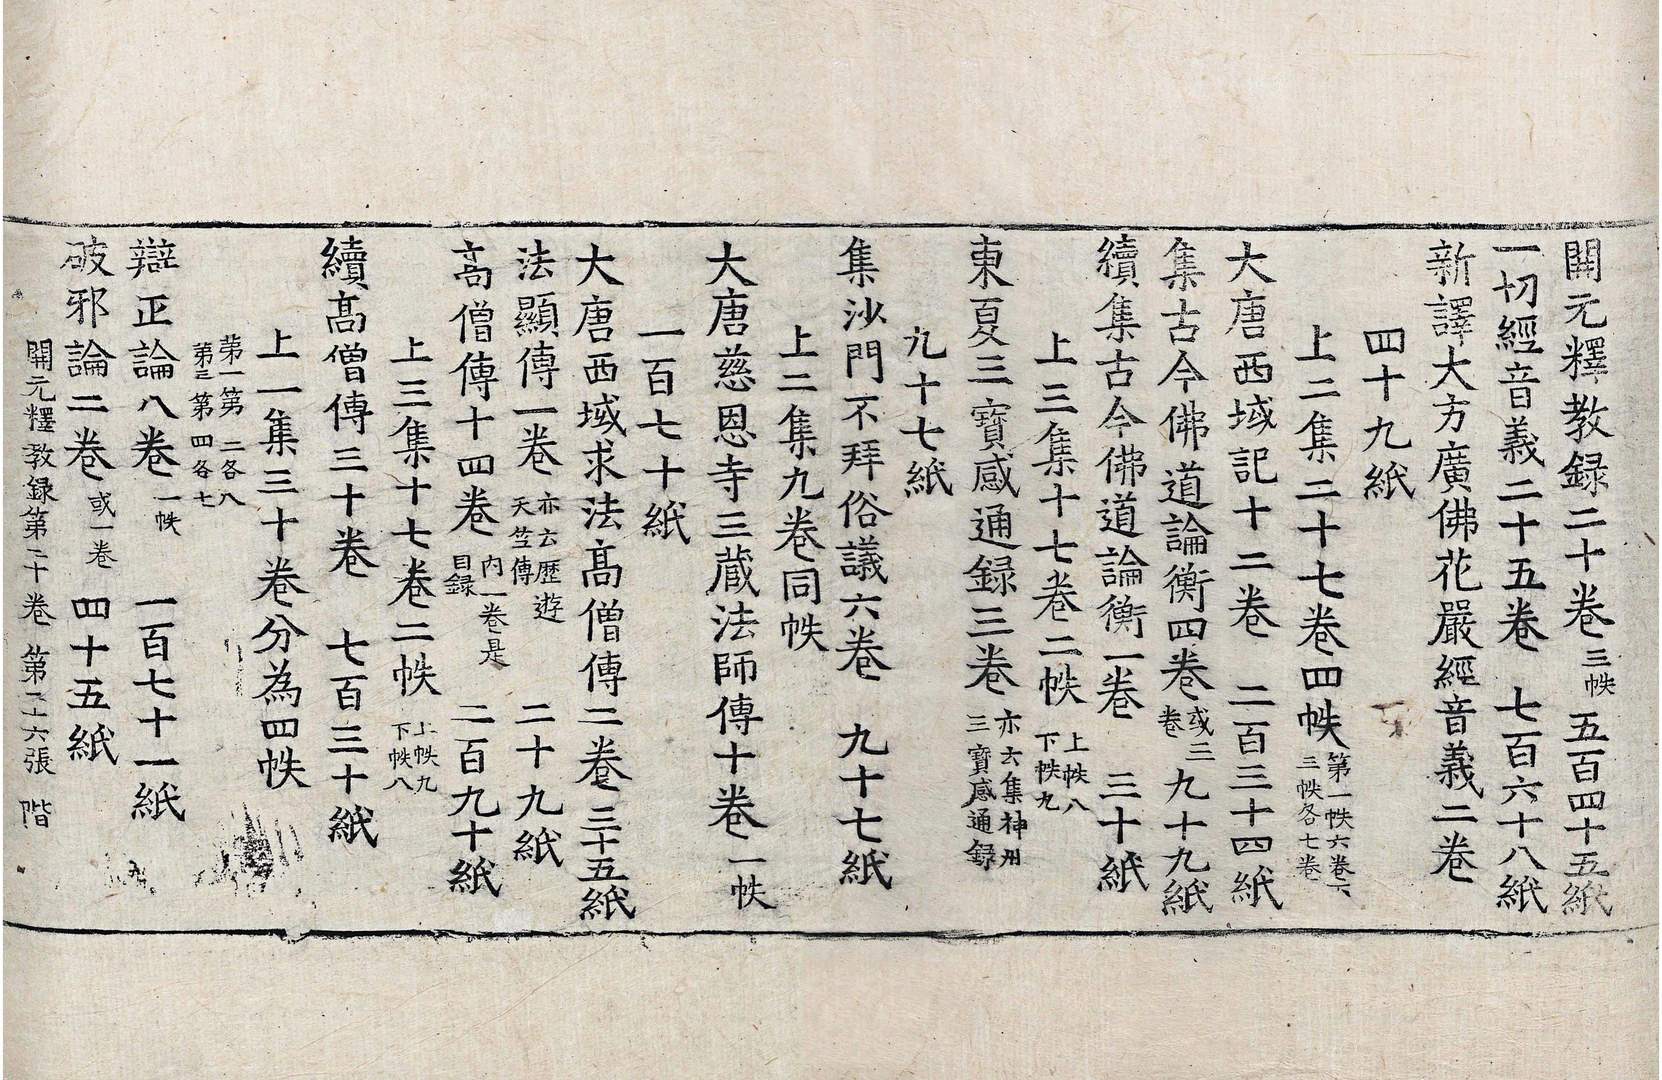 開元釋教録二十卷三帙 五百四十五紙
一切經音義二十五卷 七百六十八紙
新譯大方廣佛花嚴經音義二卷
四十九紙
上二集二十七卷四帙第一帙六卷六
三帙各七卷
大唐西域記十二卷 二百三十四紙
集古今佛道論衡四卷或三
卷 九十九紙
續集古今佛道論衡一卷 三十紙
上三集十七卷二帙上帙八
下帙九
東夏三寶感通録三卷亦云集神州
三寶感通録
九十七紙
集沙門不拜俗議六卷 九十七紙
上二集九卷同帙
大唐慈恩寺三蔵法師傳十卷一帙
一百七十紙
大唐西域求法髙僧傳二卷三十五紙
法顯傳一卷亦云歷遊
天竺傳 二十九紙
髙僧傳十四卷内一卷是
目録 二百九十紙
上三集十七卷二帙上帙九
下帙八
續髙僧傳三十卷 七百三十紙
上一集三十卷分為四帙
第一第二各八
第三第四各七
辯正論八卷一帙 一百七十一紙
破邪論二卷或一卷 四十五紙
開元釋教録第二十卷 第二十六張 階